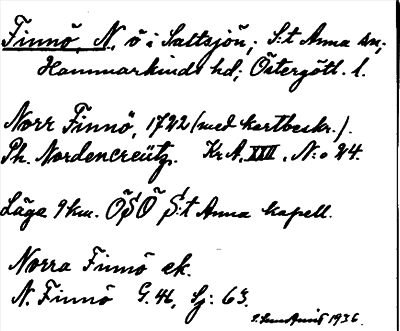 Finnö, N. ö i Saltsjön; S:t Anna sn;
Hammarkinds hd; Östergötl. l.
Norr Finnö, 1722 (med kartbeskr.).
Ph. Nordencreütz. Kr. A. XXII. N:o 24.
Läge 9 km. ÖSÖ S:t Anna kapell.
Norra Finnö ek.
N. Finnö G. 46, Sj: 63.
1936.